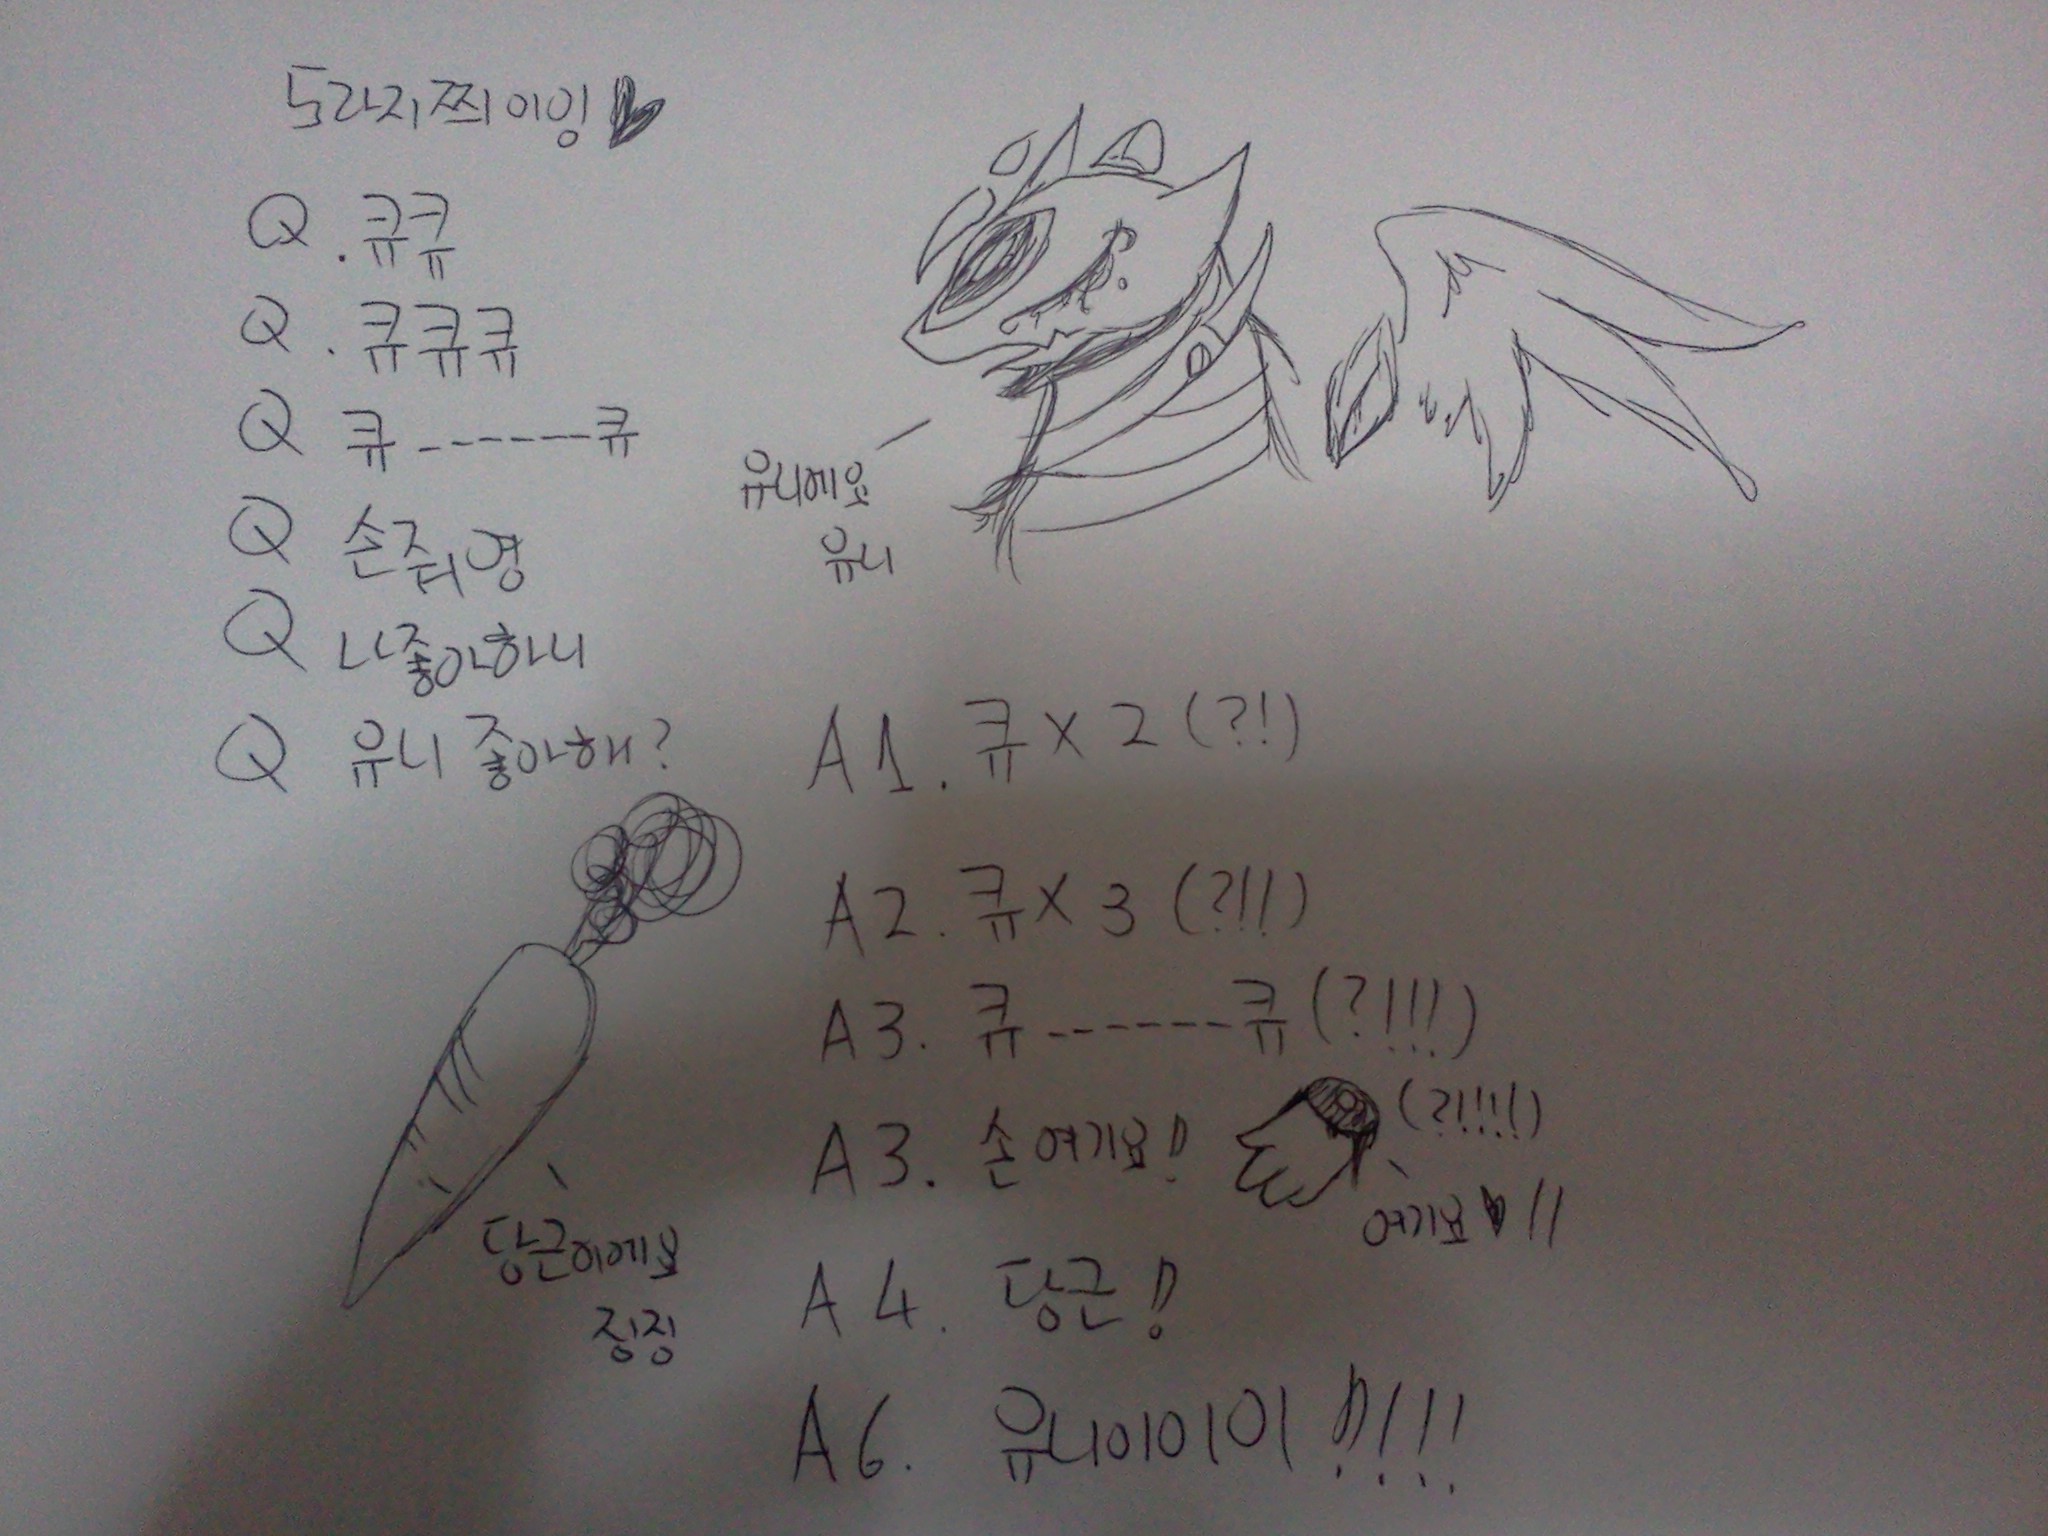 도라지찌이잉♥
Q.큐큐
Q.큐큐큐
Q 큐------큐
Q 손줘영
Q 나좋아하니
Q 유니 좋아해?
유니에요
유니
A1.큐×2(?!)
A2.큐×3(?!!)
A3.큐------큐(?!!!)
A3.손여기요!
(?!!!!)
여기요♥!!
당근이에요
징징
A4.당근!
A6.유니이이이!!!!